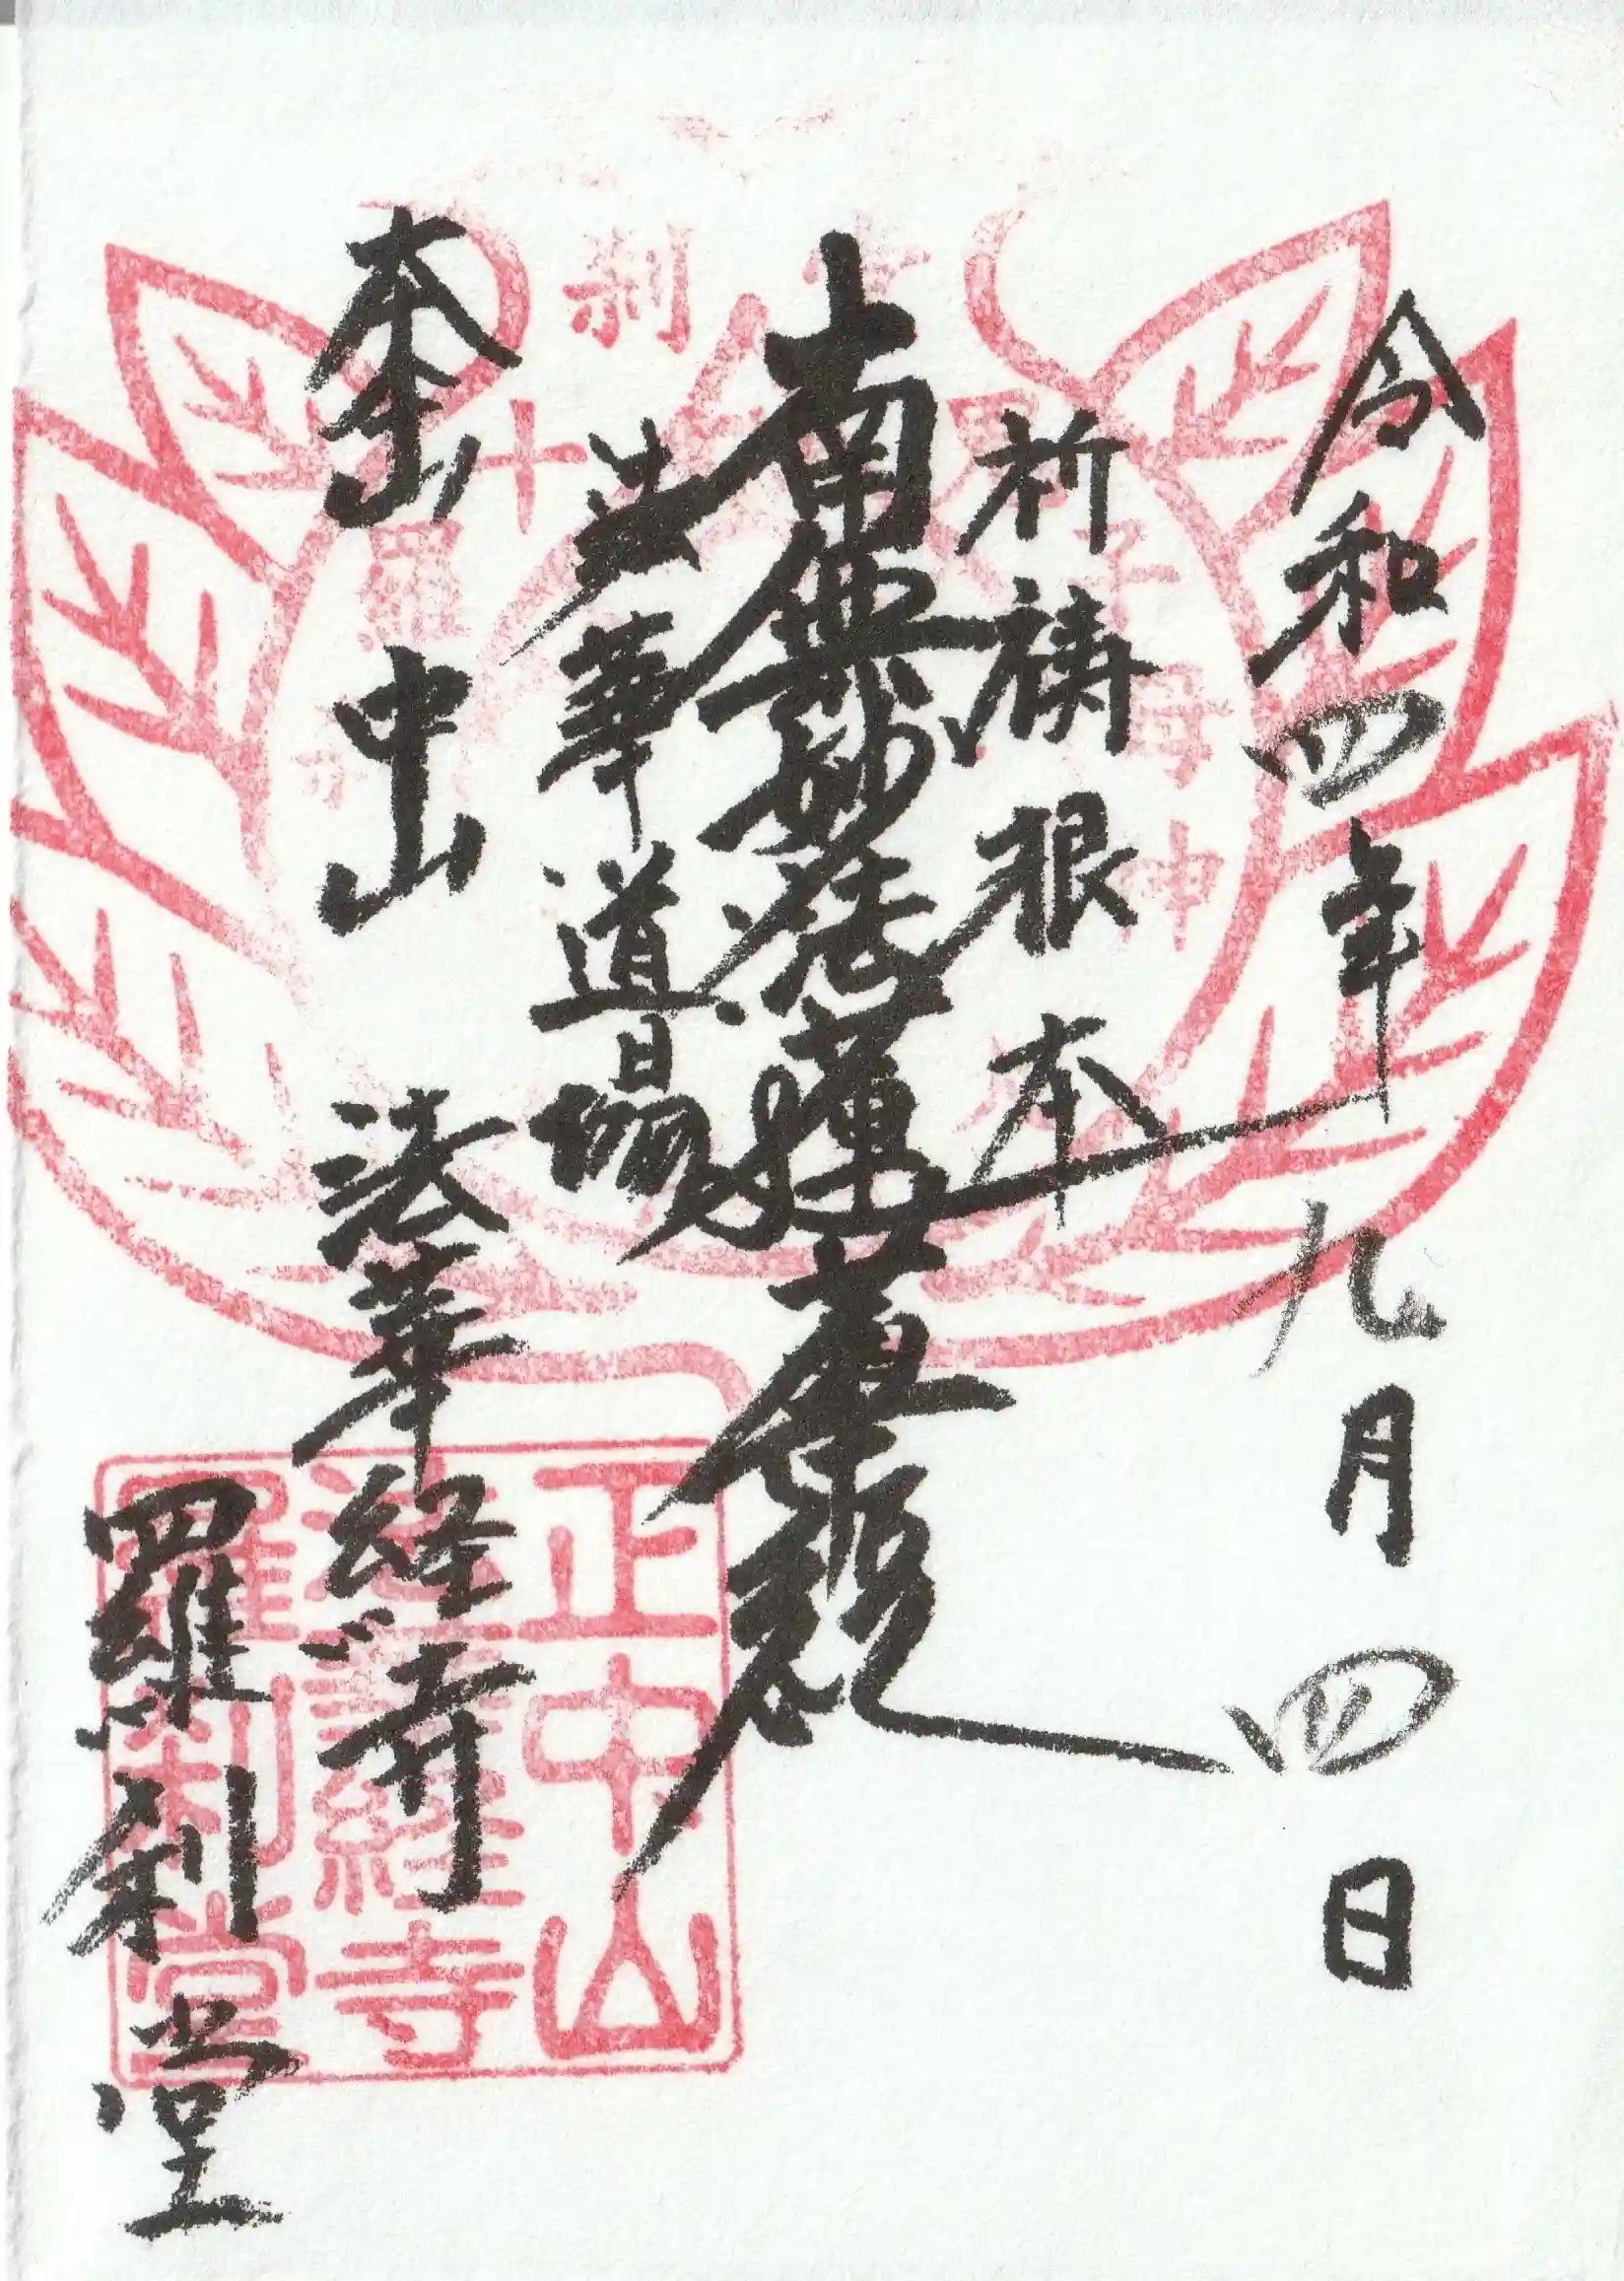 令和四年九月四日
祈祷根本
南無妙法蓮華経
法華道場
大本山 中山 法華経寺
羅刹堂
正中山
法華経寺
羅刹堂
母神
十羅
刹